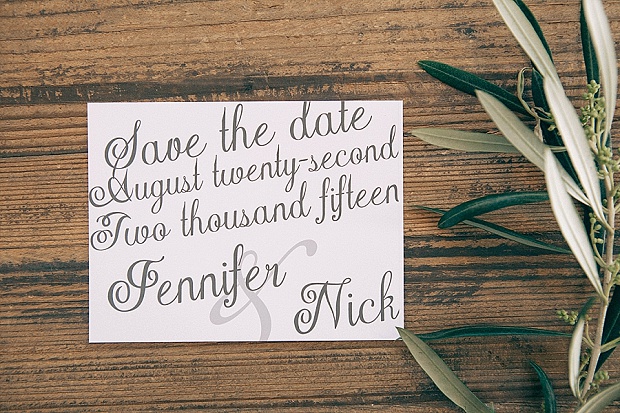 Save the date
August twenty-second
Two thousand fifteen
Jennifer
&
Nick